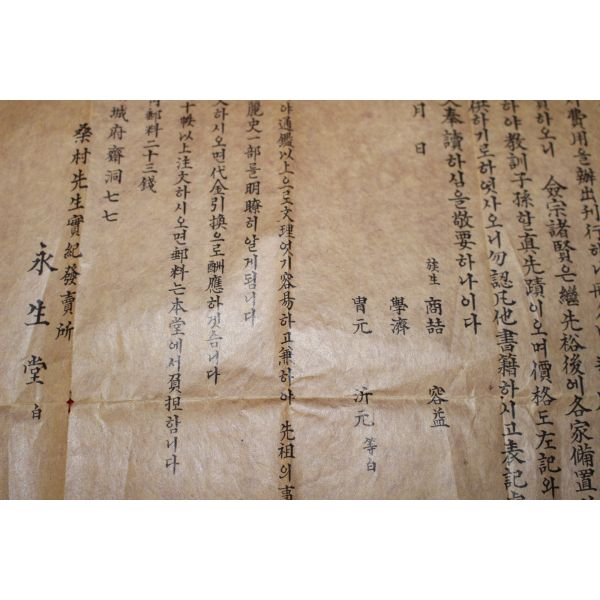 費用을辦出刊行하니
하오니 僉宗諸賢은繼先裕後에各家備置
하야敎訓子孫할眞先蹟이오며價格도左記와
供하기로하엿사오니勿認凡他書籍하시고表記
奉讀하심을敬要하나이다
月 日
族生 商喆 容益
學濟
胄元 沂元 等白
야通鑑以上으로文理엿기容易하고兼하야 先祖의事
麗史一部를明瞭히알게됩니다
하시오면代金引換으로酬應하겟슴니다
十帙以上注文하시오면郵料는本堂에서負担합니다
郵料二十三錢
城府齋洞七七
桑村先生實紀發賣所
永生堂 白